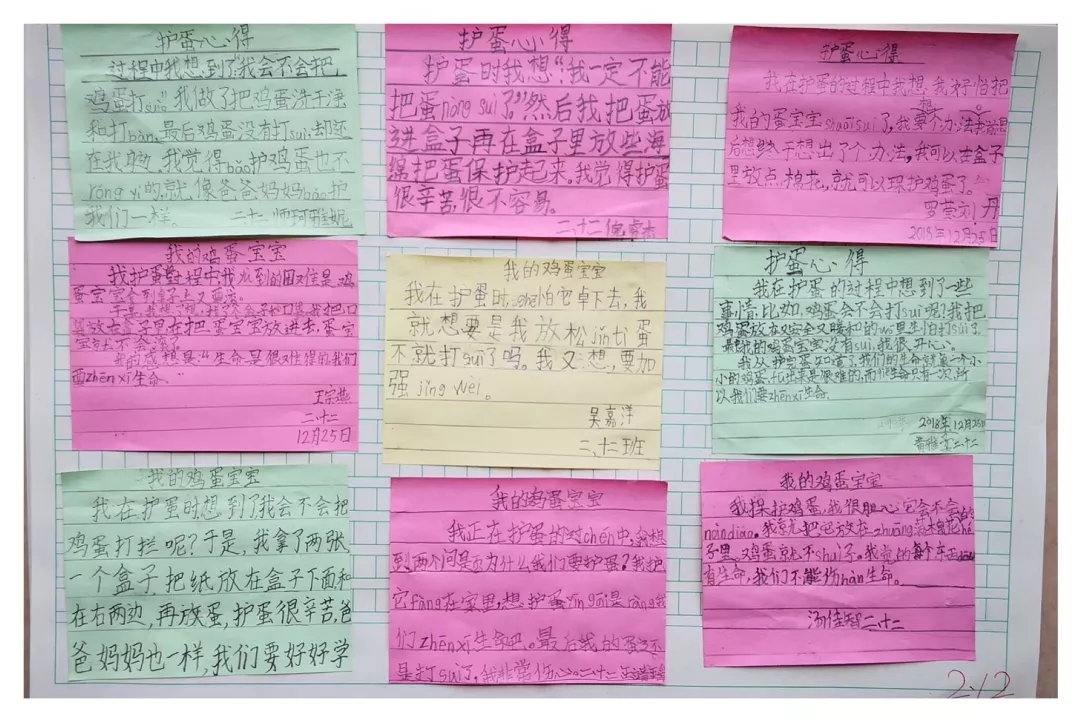 护蛋心得
过程中我想到了我会不会把
鸡蛋打sui。我做了把鸡蛋洗干净
和打bàn，最后鸡蛋没有打sui，却还
在我身边。我觉得bǎo护鸡蛋也不
róng yì的，就像爸爸妈妈bǎo护
我们一样。 二、十二 师珂雅妮
护蛋心得
护蛋时我想“我一定不能
把蛋nòng suì了。”然后我把蛋放
进盒子再在盒子里放些海
绵把蛋保护起来。我觉得护蛋
很辛苦，很不容易。
二、十二
护蛋心得
我在护蛋的过程中我想，我好怕把
我的蛋宝宝shuāi sui了，我想个办法
后想终于想出了个办法，我可以在盒子
里放点棉花，就可以保护鸡蛋了。
罗蓥刘丹
2018年12月25日
我的鸡蛋宝宝
我护蛋过程中我
蛋宝宝
放在盒子里在把蛋宝宝放进去，蛋宝
宝就不会
我的感想是：“生命是很难得的我们
要zhēn xī生命。”
王宗燕
二、十二
12月25日
我的鸡蛋宝宝
我在护蛋时，怕它卓下去，我
就想要是我放松jǐn tì 蛋
不就打suī了吗。我又想，要加
强jǐng wèi。
吴嘉洋
二、十二班
护蛋心得
我在护蛋的过程中想到了一些
事情，比如，鸡蛋会不会打sui呢？我把
鸡蛋放在又安全又暖和的wō里生怕打sui了，
最后我的鸡蛋宝宝没有sui，我很开心。
我们的生命就象一个小
小的鸡蛋，是很难的，而生命只有一次，所
以我们要zhēn xī生命。
2018年12月25日
二、十二
我的鸡蛋宝宝
我在护蛋时想到了我会不会把
鸡蛋打拦呢？于是，我拿了两张
一个盒子把纸放在盒子下面和
在右两边，再放蛋，护蛋很辛苦，爸
爸妈妈也一样，我们要好好学
我的鸡蛋宝宝
我正在护蛋的过chén中，我想
到两个问是页为什么我们要护蛋？我把
它fàng在家里，想护蛋yīng gāi是ràng我
们zhēn xī生命吧。最后我的蛋还
是打suì了，我非常伤心。二、十二
我的鸡蛋宝宝
我保护鸡蛋，我很胆心它会不会
nòn diào。我首先把它放在zhuāng棉花
子里，鸡蛋就不shuì了。我觉的每个东西
有生命，我们不能伤hàn生命。
汤佳智 二、十二
2.12